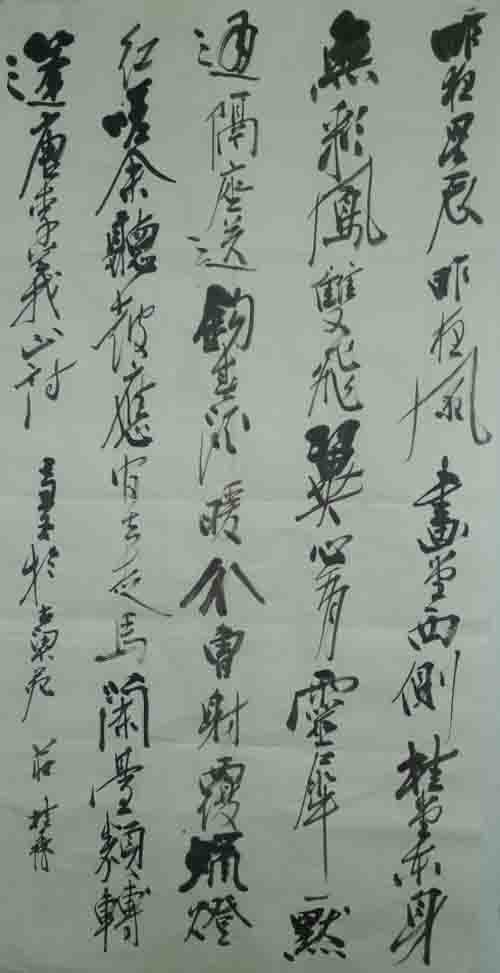 昨夜星辰昨夜風畫堂西側桂堂東身
無彩鳳雙飛翼心有靈犀一點
通隔座送鈎春酒暖分曹射覆蠟燈
紅嗟余聽鼓應官去走馬蘭臺類轉
蓬唐李義山詩
於 苑 莊桂